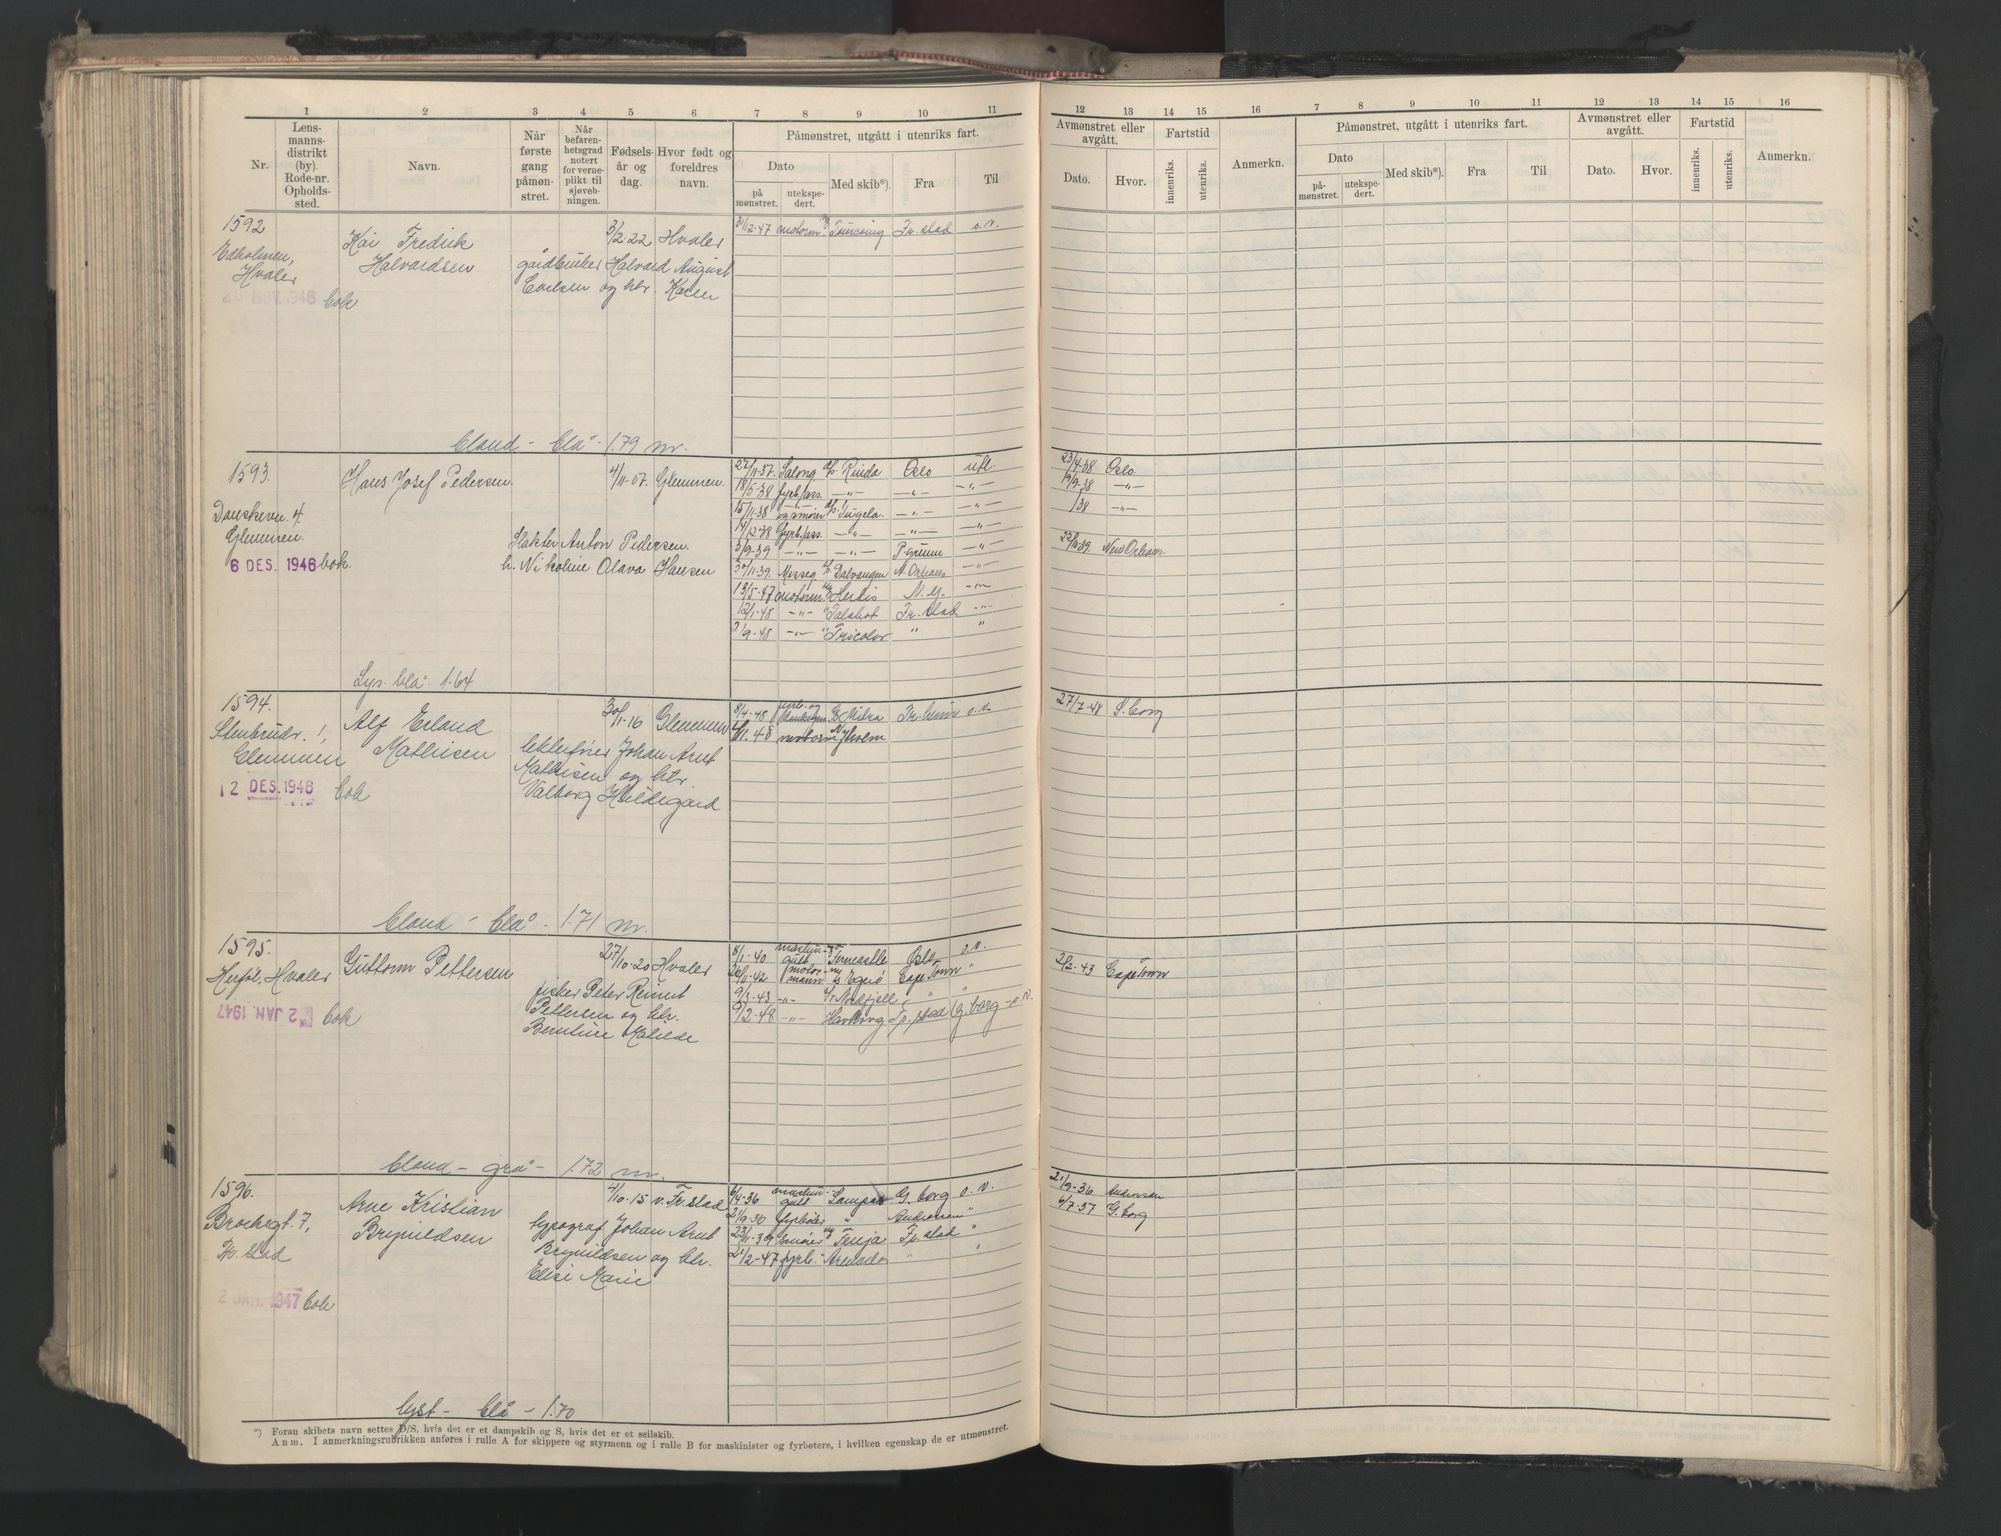 1 2 3 4 5 6 7 8 9 10 11
Nr.
Lens-
manns-
distrikt
(by).
Rode-nr.
Opholds-
sted.
Navn.
Når
første
gang
påmøn-
stret.
Når
befaren-
hetsgrad
notert
for verne-
plikt til
sjøveb-
ningen.
Fødsels-
år og
dag.
Hvor født og
foreldres
navn.
Påmønstret, utgått i utenriks fart.
Dato
på
mønstret.
utekspe-
dert.
Med skib*).
Fra
Til
1592
Hvaler
28 NOV. 1946 bok
Kai Fredrik
Halvardsen
3/2-22 Hvaler
gårdbruker Halvard August
Carlsen og htr. Karen
31/12-47 motorm. Fr.stad
blond - blå - 1.79 m.
1593.
Danskevn. 4.
Glemmen.
6 DES. 1946 bok.
Hans Josef Pedersen.
4/11-07. Glemmen.
Slakter Anton Pedersen.
h. Nikoline Olava Hansen
27/11-37. Salong Rinda Oslo utl.
18/5-38 fyrb/ass. -"- -"- -"-
15/11-38 og smører Tugela -"- -"-
14/12-38 fyrb/ass. -"- -"- -"-
3/9-39 -"- -"- P.grunn -"-
30/11-39. Messeg Dalvangen N. Orleans -"-
13/5-47 motorm. Herdis N.Y. -"-
12/1-48 -"- Fr. stad -"-
-9-48 -"- Tricolor " "
Lys. blå. 1.64
1594.
Stenbrudv. 1,
Glemmen
12 DES. 1946 bok
Alf Erland
Mathisen
30/11-16 Glemmen
Johan Arnt
Mathisen og htr
Valborg Hildegard
8/4-48 fyrb. og
motorm
blond - blå - 1.71 m.
1595.
Herføl, Hvaler
2 JAN. 1947 bok
Guttorm Pettersen
27/10-20 Hvaler
fisker Peter
Pettersen og htr.
Matilde
8/1-40 Ferncastle Oslo o.v.
motor-
mann Egerö Cape Town "
9/3-43 -"- "
9/2-48 -"- Havborg Fr.stad G.borg o.v.
blond - grå - 1.72 m.
1596.
Brochsgt. 7,
Fr. stad
2 JAN. 1947 bok
Arne Kristian
Brynildsen
4/10-15 v. Fr.stad
typograf Johan Arnt
Brynildsen og htr.
Elise Marie
6/4-36 G. borg o.v.
fyrbøter " "
smører Tenja Fr. stad "
21/2-47 fyrb. " "
lyst - blå - 1.70
*) Foran skibets navn settes D/S, hvis det er et dampskib og S, hvis det er et seilskib.
Anm. I anmerkningsrubrikken anføres i rulle A for skippere og styrmenn og i rulle B for maskinister og fyrbøtere, i hvilken egenskap de er utmønstret.
12 13 14 15 16 7 8 9 10 11 12 13 14 15 16
Avmønstret eller
avgått.
Dato.
Hvor.
Fartstid
innenriks.
utenriks.
Anmerkn.
Påmønstret, utgått i utenriks fart.
Dato
på-
mønstret.
utekspe-
dert.
Med skib*).
Fra
Til
Avmønstret eller
avgått.
Dato.
Hvor.
Fartstid
innenriks.
utenriks.
Anmerkn.
23/4-38 Oslo.
19/9-38 -"-
/38 -"-
23/11-39. New Orleans.
27/7-48 S. borg
2/2-43 Cape Town
21/9-36
6/7-37 G. borg